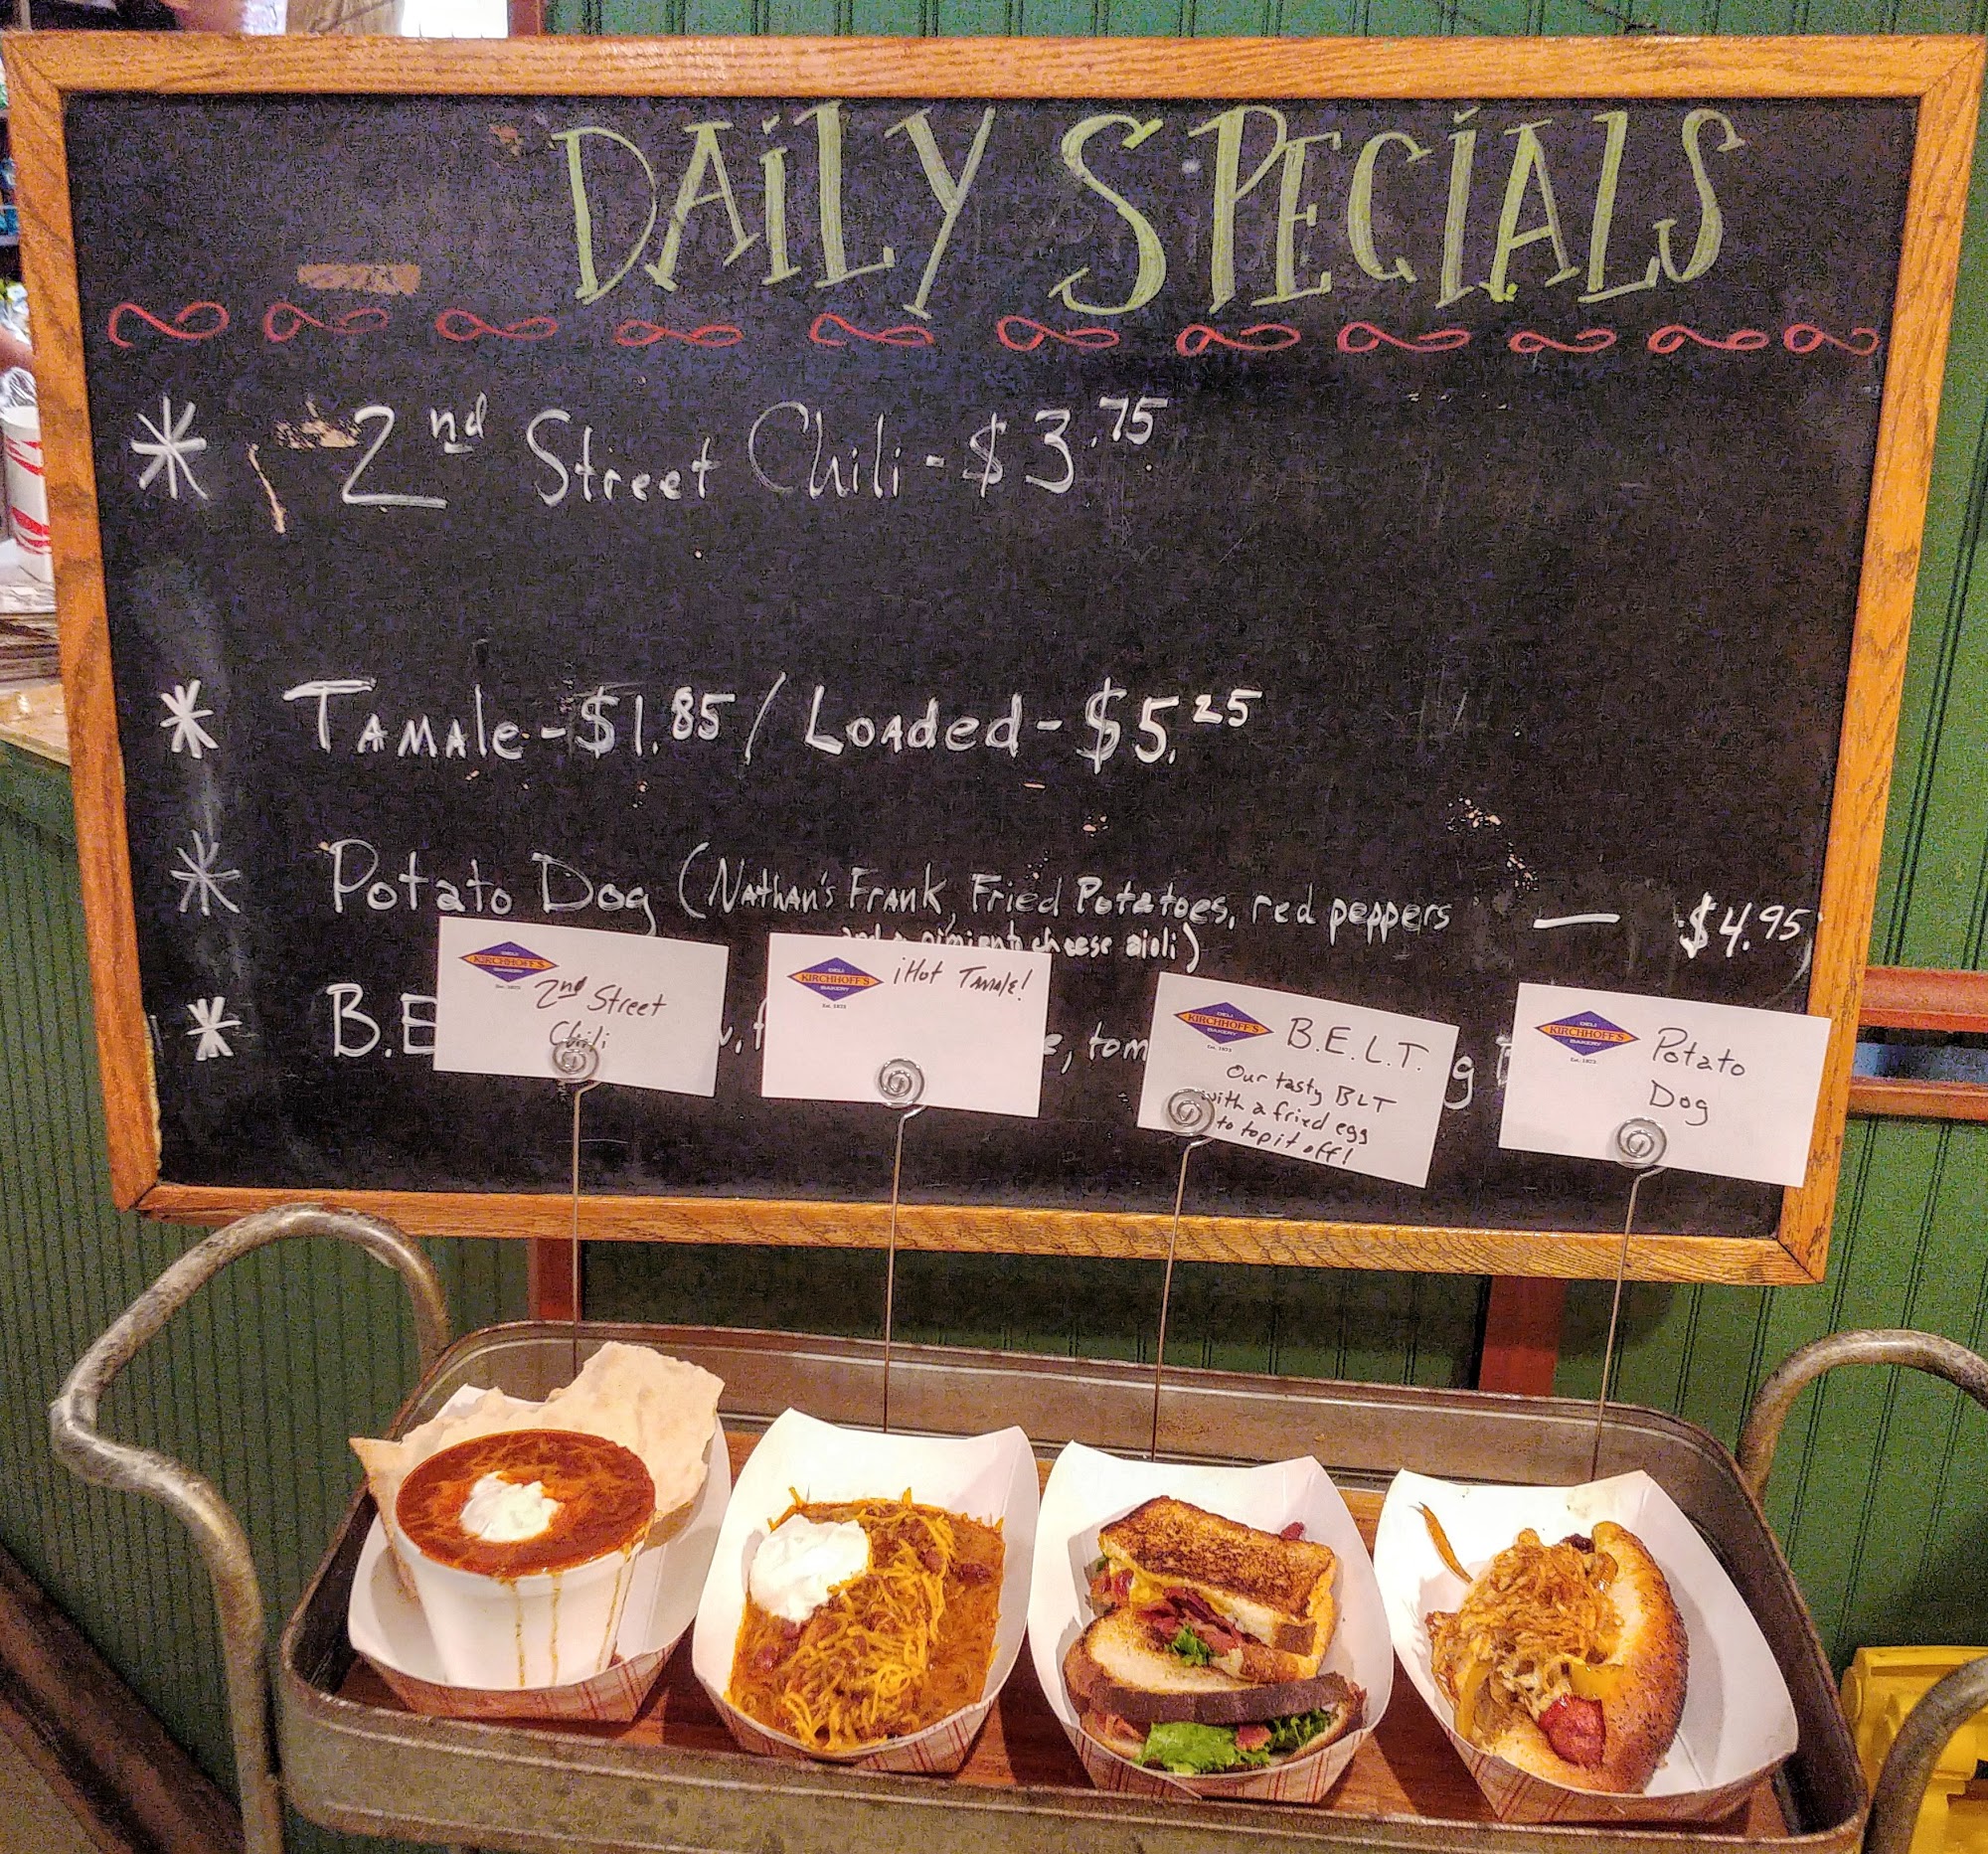 DAiLY SPECiALS
* 2nd Street Chili - $3.75
* TAMAle - $1.85 / LoAded - $5.25
* Potato Dog (NAthan's FRANK, Fried Potatoes, red peppers — $4.95
pimiento cheese aioli)
* B.E
tom
DELI
KIRCHHOFF'S
BAKERY
Est. 1873
2nd Street
Chili
DELI
KIRCHHOFF'S
BAKERY
Est. 1873
¡Hot TAMAlE!
DELI
KIRCHHOFF'S
BAKERY
Est. 1873
B.E.L.T.
Our tasty BLT
with a fried egg
to top it off!
DELI
KIRCHHOFF'S
BAKERY
Est. 1873
Potato
Dog